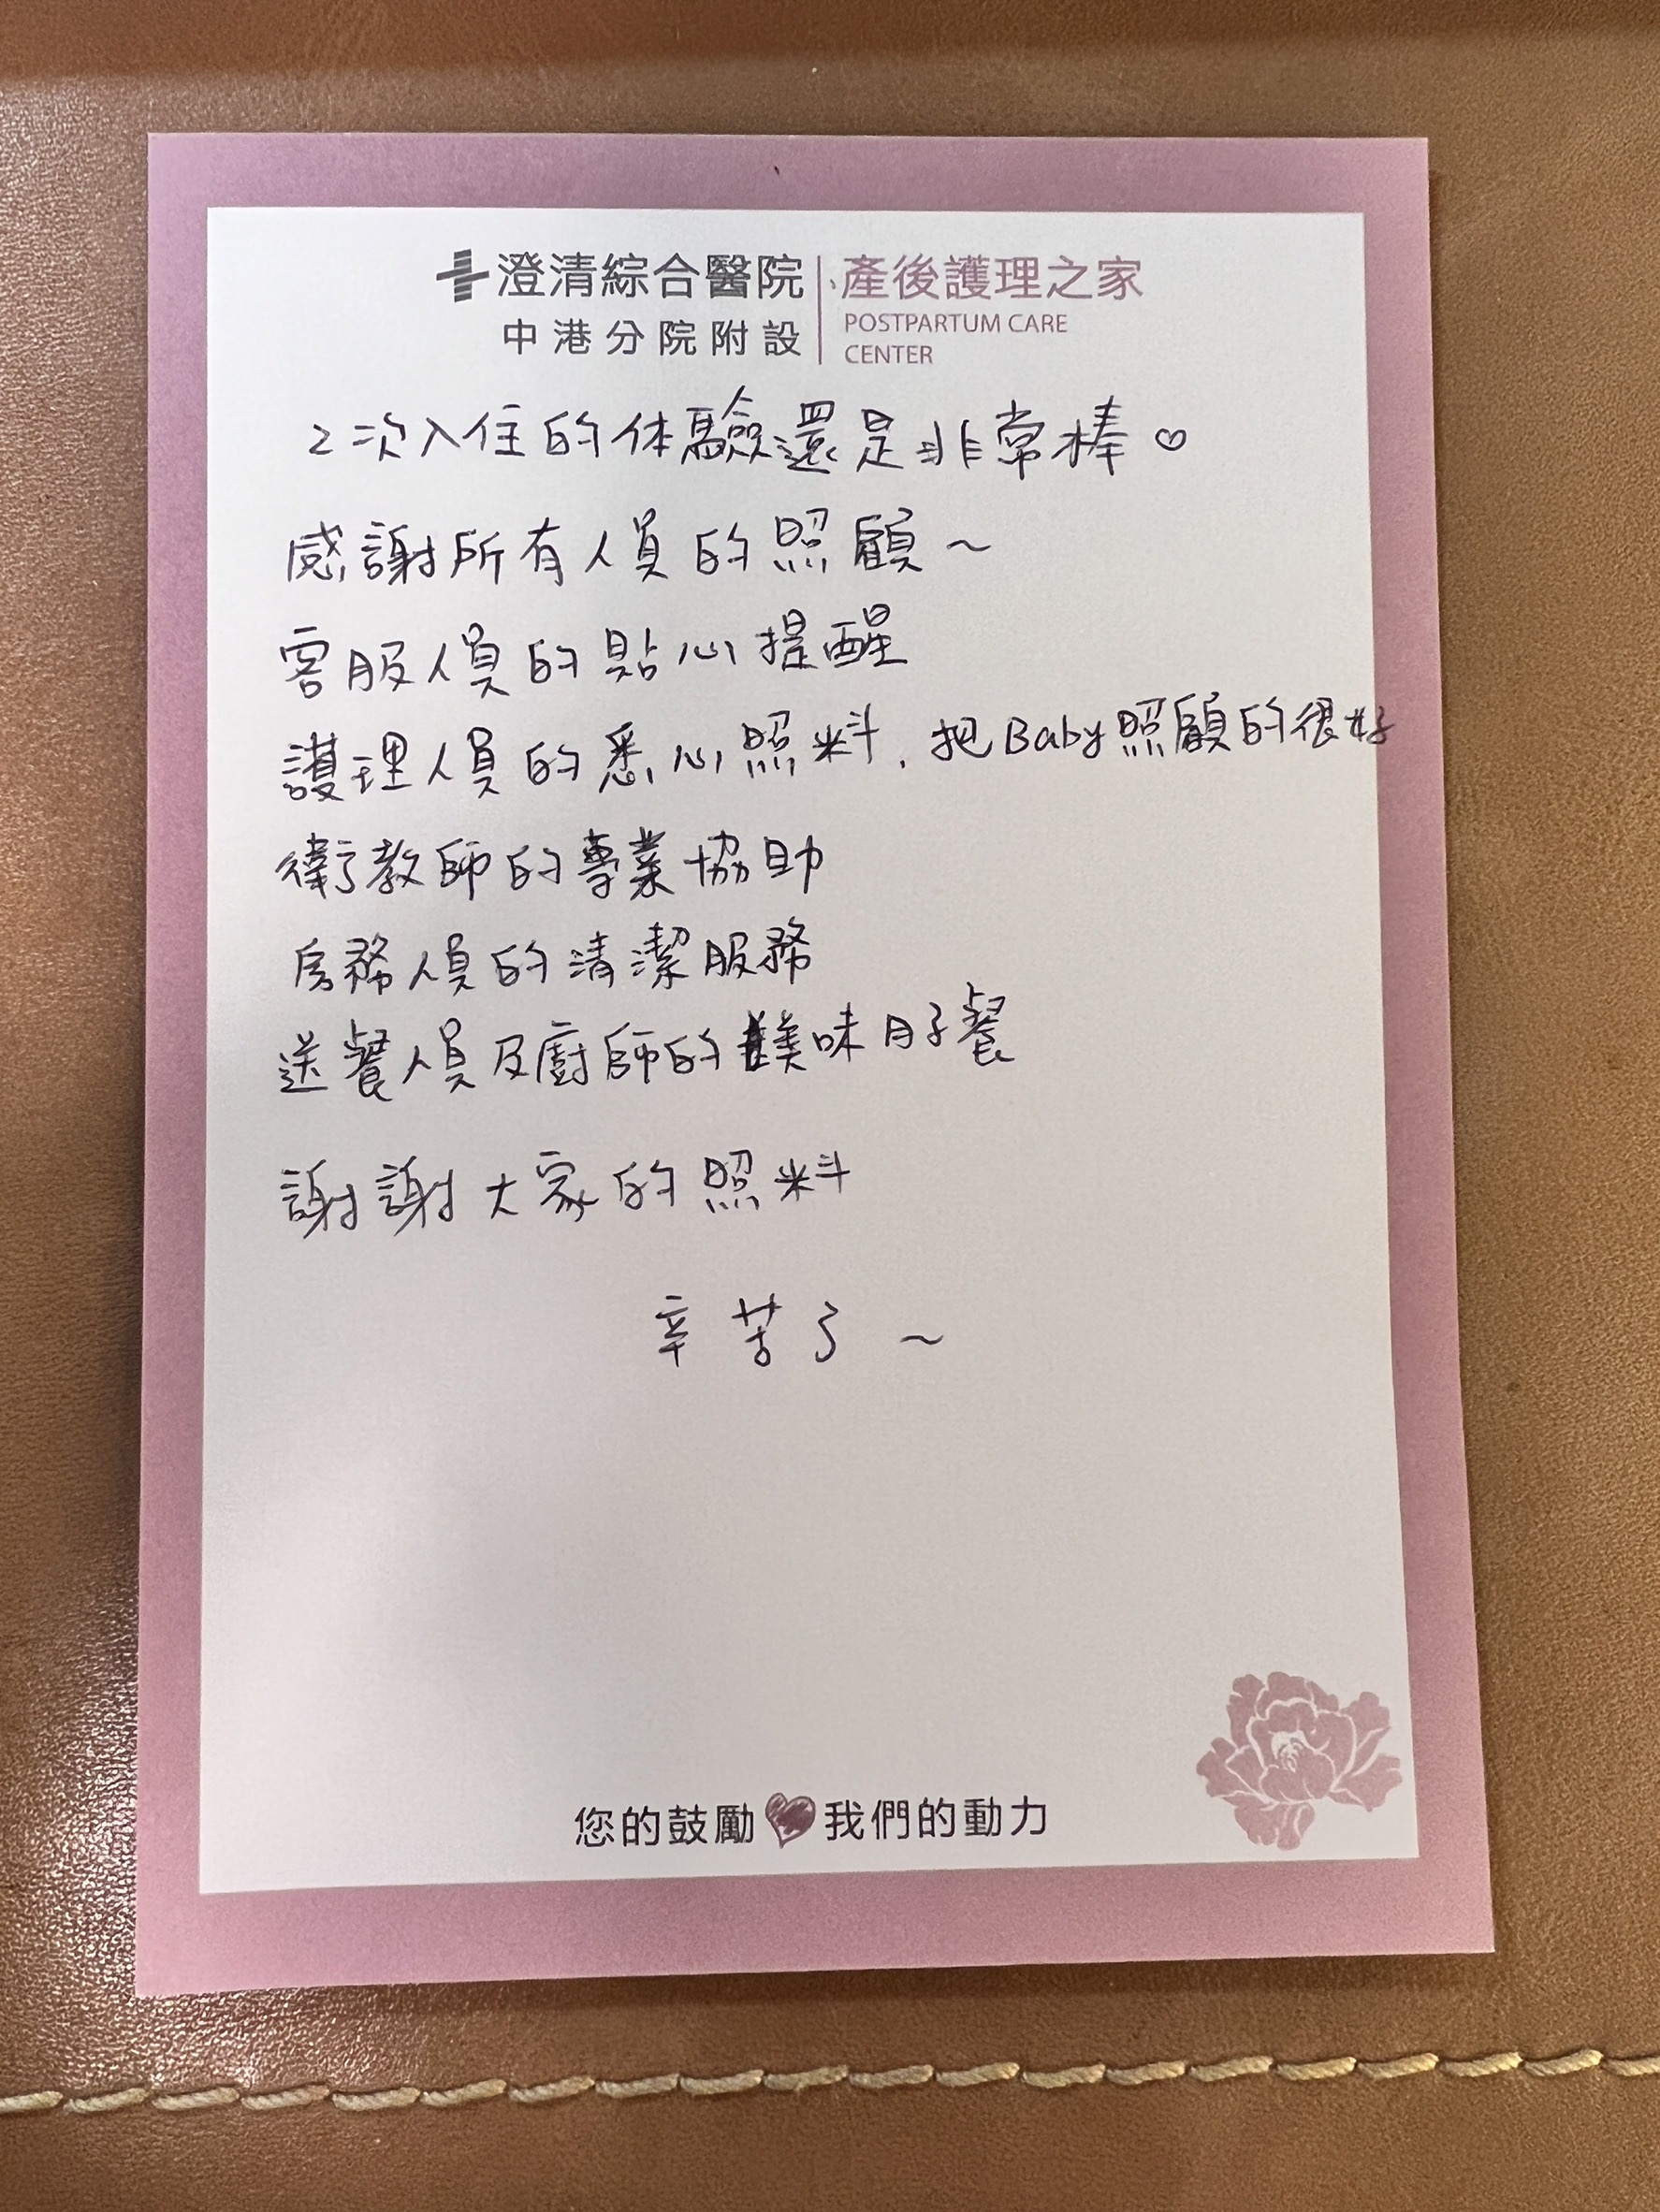 澄清綜合醫院
中港分院附設
產後護理之家
POSTPARTUM CARE
CENTER
2次入住的体驗還是非常棒♡
感謝所有人員的照顧~
客服人員的貼心提醒
護理人員的悉心照料、把Baby照顧的很好
衛教師的專業協助
房務人員的清潔服務
送餐人員及廚師的美味月子餐
謝謝大家的照料
辛苦了~
您的鼓勵❤我們的動力